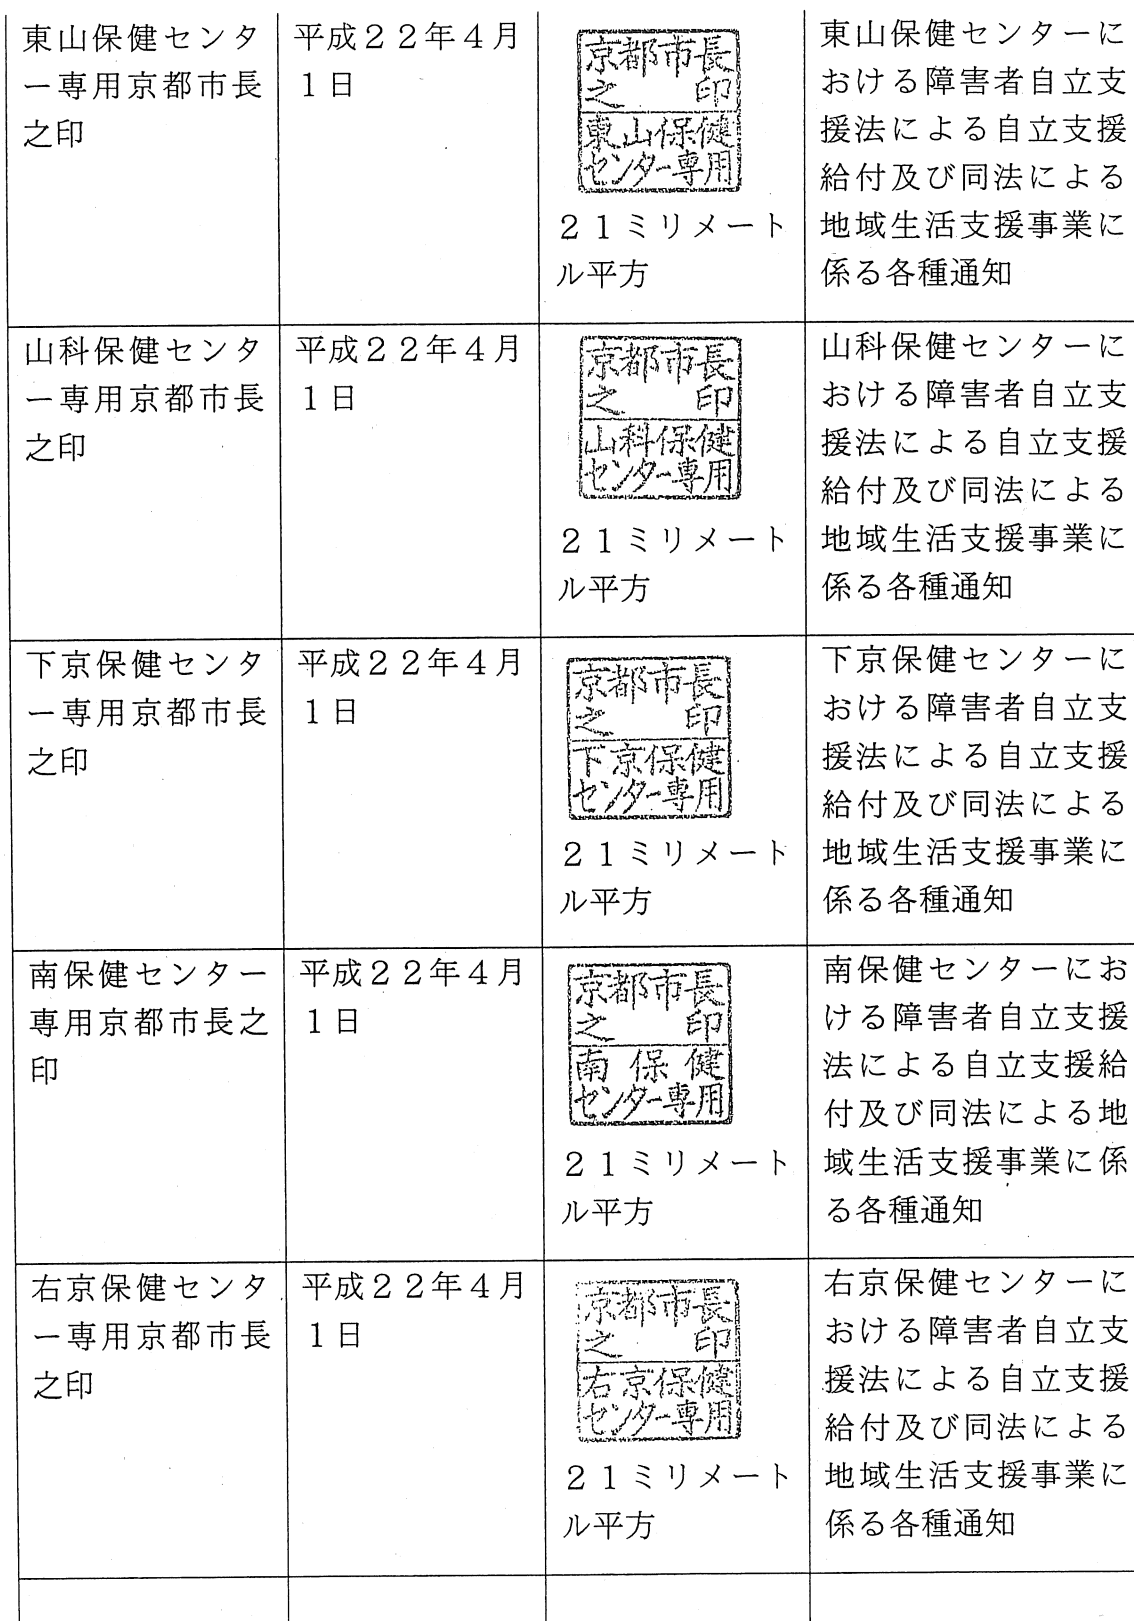 東山保健センタ
ー専用京都市長
之印
平成２２年４月
１日
京都市長
之　印
東山保健
センター専用
２１ミリメート
ル平方
東山保健センターに
おける障害者自立支
援法による自立支援
給付及び同法による
地域生活支援事業に
係る各種通知
山科保健センタ
ー専用京都市長
之印
平成２２年４月
１日
京都市長
之　印
山科保健
センター専用
２１ミリメート
ル平方
山科保健センターに
おける障害者自立支
援法による自立支援
給付及び同法による
地域生活支援事業に
係る各種通知
下京保健センタ
ー専用京都市長
之印
平成２２年４月
１日
京都市長
之　印
下京保健
センター専用
２１ミリメート
ル平方
下京保健センターに
おける障害者自立支
援法による自立支援
給付及び同法による
地域生活支援事業に
係る各種通知
南保健センター
専用京都市長之
印
平成２２年４月
１日
京都市長
之　印
南保健
センター専用
２１ミリメート
ル平方
南保健センターにお
ける障害者自立支援
法による自立支援給
付及び同法による地
域生活支援事業に係
る各種通知
右京保健センタ
ー専用京都市長
之印
平成２２年４月
１日
京都市長
之　印
右京保健
センター専用
２１ミリメート
ル平方
右京保健センターに
おける障害者自立支
援法による自立支援
給付及び同法による
地域生活支援事業に
係る各種通知